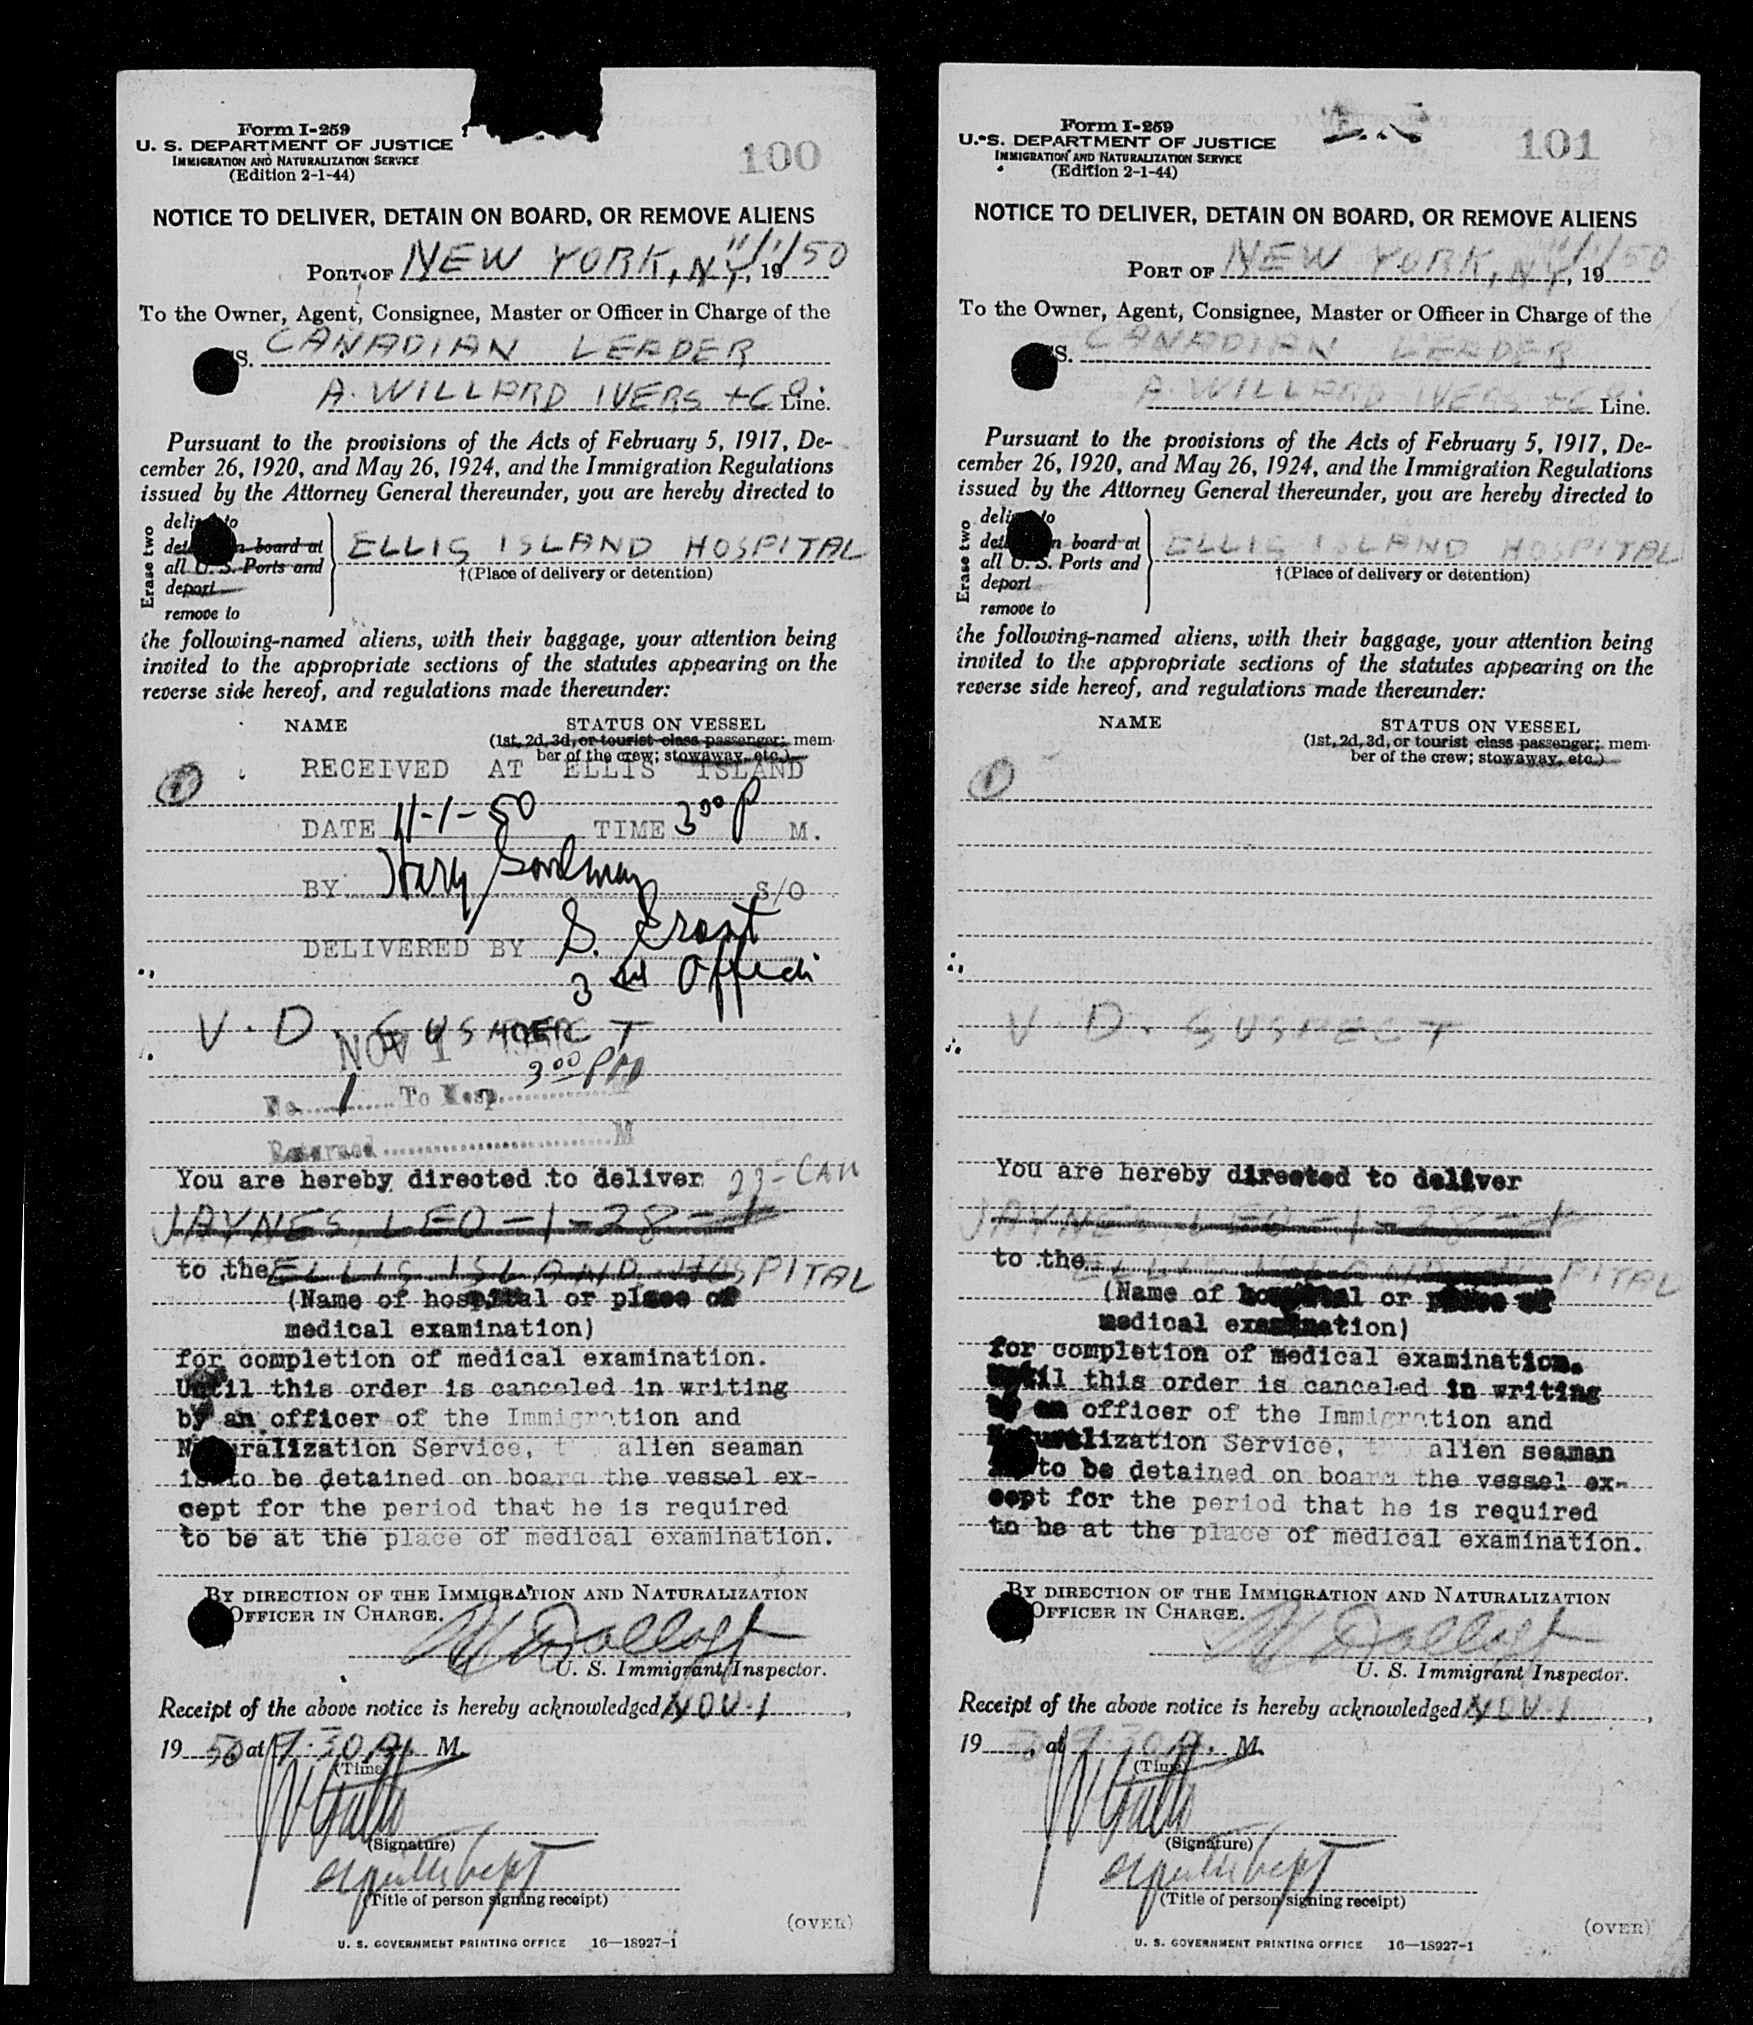 Form I-259
U. S. DEPARTMENT OF JUSTICE
IMMIGRATION AND NATURALIZATION SERVICE
(Edition 2-1-44)
100
NOTICE TO DELIVER, DETAIN ON BOARD, OR REMOVE ALIENS
PORT OF NEW YORK, N.Y., 11/1/1950
To the Owner, Agent, Consignee, Master or Officer in Charge of the
S. CANADIAN LEADER
A. WILLARD IVERS + CO. Line.
Pursuant to the provisions of the Acts of February 5, 1917, De-
cember 26, 1920, and May 26, 1924, and the Immigration Regulations
issued by the Attorney General thereunder, you are hereby directed to
Erase two
deliver to
detain on board at
all U. S. Ports and
deport
remove to
ELLIS ISLAND HOSPITAL
†(Place of delivery or detention)
the following-named aliens, with their baggage, your attention being
invited to the appropriate sections of the statutes appearing on the
reverse side hereof, and regulations made thereunder:
NAME STATUS ON VESSEL
(1st, 2d, 3d, or tourist class passenger; mem-
ber of the crew; stowaway, etc.)
1 RECEIVED AT ELLIS ISLAND
DATE 11-1-50 TIME 3 00 P M.
BY Harry Goodman S/O
DELIVERED BY S. Grant
3rd Officer
V. D. SUSPECT
NOV 1
3 00 PM
No. 1 To Hosp. M
Returned M
You are hereby directed to deliver 23-CAN
JAYNES, LEO - 1 - 28 -
to the ELLIS ISLAND HOSPITAL
(Name of hospital or place of
medical examination)
for completion of medical examination.
Until this order is canceled in writing
by an officer of the Immigration and
Naturalization Service, t alien seaman
is to be detained on board the vessel ex-
cept for the period that he is required
to be at the place of medical examination.
BY DIRECTION OF THE IMMIGRATION AND NATURALIZATION
OFFICER IN CHARGE.
U. S. Immigrant Inspector.
Receipt of the above notice is hereby acknowledged NOV. 1,
19 50, at 9.30 A. M.
(Time)
(Signature)
(Title of person signing receipt)
(OVER)
U. S. GOVERNMENT PRINTING OFFICE 16—18927-1
Form I-259
U. S. DEPARTMENT OF JUSTICE
IMMIGRATION AND NATURALIZATION SERVICE
(Edition 2-1-44)
101
NOTICE TO DELIVER, DETAIN ON BOARD, OR REMOVE ALIENS
PORT OF NEW YORK, N.Y., 11/1/1950
To the Owner, Agent, Consignee, Master or Officer in Charge of the
S. CANADIAN LEADER
A. WILLARD IVERS + CO. Line.
Pursuant to the provisions of the Acts of February 5, 1917, De-
cember 26, 1920, and May 26, 1924, and the Immigration Regulations
issued by the Attorney General thereunder, you are hereby directed to
Erase two
deliver to
detain on board at
all U. S. Ports and
deport
remove to
ELLIS ISLAND HOSPITAL
†(Place of delivery or detention)
the following-named aliens, with their baggage, your attention being
invited to the appropriate sections of the statutes appearing on the
reverse side hereof, and regulations made thereunder:
NAME STATUS ON VESSEL
(1st, 2d, 3d, or tourist class passenger; mem-
ber of the crew; stowaway, etc.)
1
V. D. SUSPECT
You are hereby directed to deliver
JAYNES, LEO - 1 - 28 -
to the ELLIS ISLAND HOSPITAL
(Name of hospital or place of
medical examination)
for completion of medical examination.
Until this order is canceled in writing
by an officer of the Immigration and
Naturalization Service, alien seaman
is to be detained on board the vessel ex-
cept for the period that he is required
to be at the place of medical examination.
BY DIRECTION OF THE IMMIGRATION AND NATURALIZATION
OFFICER IN CHARGE.
U. S. Immigrant Inspector.
Receipt of the above notice is hereby acknowledged NOV. 1,
19 50, at 9.30 A. M.
(Time)
(Signature)
(Title of person signing receipt)
(OVER)
U. S. GOVERNMENT PRINTING OFFICE 16—18927-1